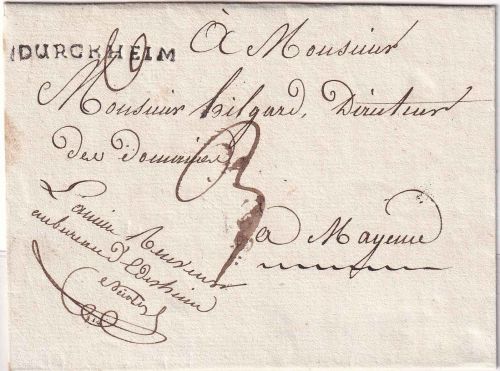 DURCKHEIM
à Monsieur
Monsieur hilgard, Directeur
des domaines
3
a Mayence
au bureau